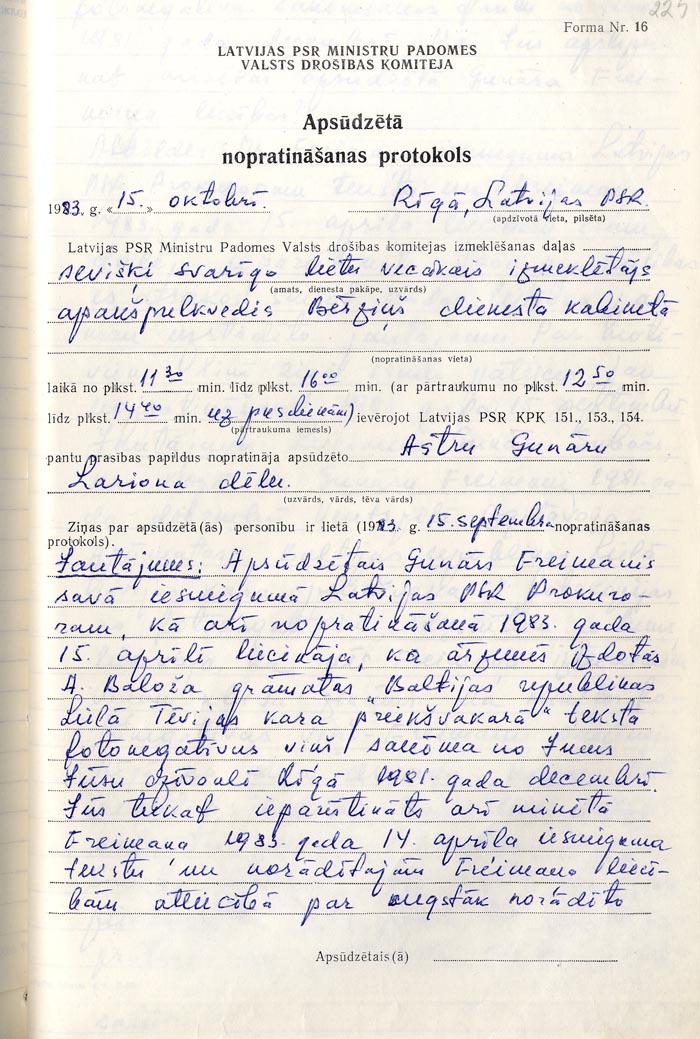 225
Forma Nr. 16
LATVIJAS PSR MINISTRU PADOMES
VALSTS DROŠĪBAS KOMITEJA
Apsūdzētā
nopratināšanas protokols
1983. g. «15.» oktobrī. Rīgā, Latvijas PSR.
(apdzīvotā vieta, pilsēta)
Latvijas PSR Ministru Padomes Valsts drošības komitejas izmeklēšanas daļas
sevišķi svarīgo lietu vecākais izmeklētājs
(amats, dienesta pakāpe, uzvārds)
apakšpulkvedis Bērziņš dienesta kabinetā
(nopratināšanas vieta)
laikā no plkst. 11 30 min. līdz plkst. 16 00 min. (ar pārtraukumu no plkst. 12 50 min.
līdz plkst. 14 40 min. uz pusdienām) ievērojot Latvijas PSR KPK 151., 153., 154.
(pārtraukuma iemesls)
pantu prasības papildus nopratināja apsūdzēto Astru Gunāru
Lariona dēlu.
(uzvārds, vārds, tēva vārds)
Ziņas par apsūdzētā(ās) personību ir lietā (1983. g. 15. septembra nopratināšanas
protokols).
Jautājums: Apsūdzētais Gunārs Freimanis
savā iesniegumā Latvijas PSR Prokuro-
ram, kā arī nopratināšanā 1983. gada
15. aprīlī liecināja, ka ārzemēs izdotās
A. Baloža grāmatas "Baltijas republikas
Lielā Tēvijas kara priekšvakarā" teksta
fotonegatīvus viņš saņēma no Jums
Jūsu dzīvoklī Rīgā 1981. gada decembrī.
Jūs tiekat iepazīstināts arī minētā
Freimaņa 1983. gada 14. aprīļa iesnieguma
tekstu un norādītajām Freimaņa liecī-
bām attiecībā par augstāk norādīto
Apsūdzētais(ā)